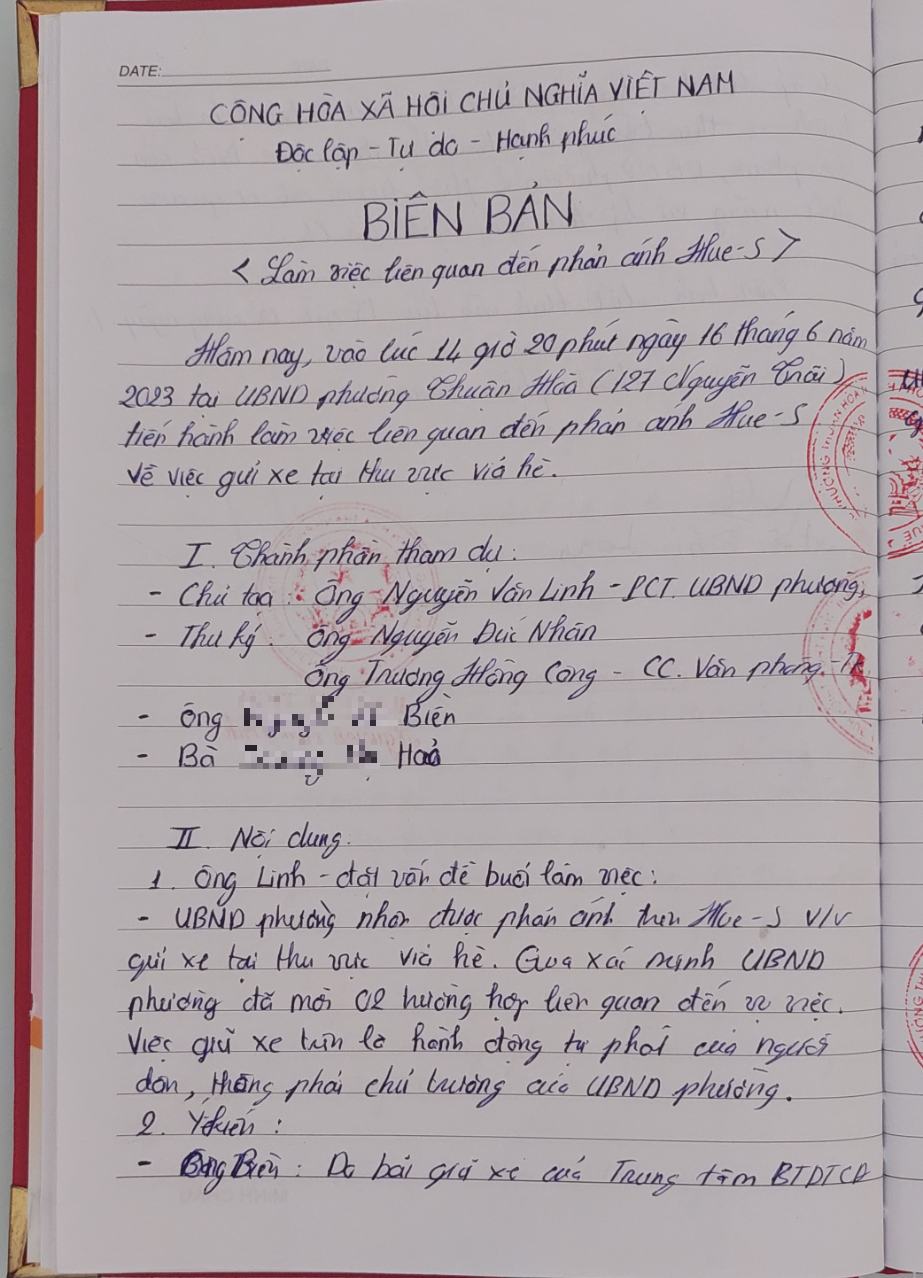 DATE:
CỘNG HÒA XÃ HỘI CHỦ NGHĨA VIỆT NAM
Độc lập - Tự do - Hạnh phúc
BIÊN BẢN
< Làm việc liên quan đến phản ánh Hue-S >
Hôm nay, vào lúc 14 giờ 20 phút ngày 16 tháng 6 năm
2023 tại UBND phường Thuận Hoà (127 Nguyễn Trãi)
tiến hành làm việc liên quan đến phản ánh Hue-S
về việc gửi xe tại khu vực vỉa hè.
I. Thành phần tham dự:
- Chủ tọa: Ông Nguyễn Văn Linh - PCT. UBND phường,
- Thư ký. Ông Nguyễn Đức Nhân
Ông Trương Hồng Cang - CC. Văn phòng-TK
- Ông Biên
- Bà Hoả
II. Nội dung.
1. Ông Linh - đặt vấn đề buổi làm việc:
- UBND phường nhận được phản ánh trên Hue-S v/v
gửi xe tại khu vực vỉa hè. Qua xác minh UBND
phường đã mời 02 trường hợp liên quan đến vụ việc.
Việc giữ xe trên là hành động tự phát của người
dân, không phải chủ trương của UBND phường.
2. Ý kiến:
- Ông Biên: Do bãi giữ xe của Trung tâm BTDTCĐ
PHƯỜNG THUẬN HOÀ